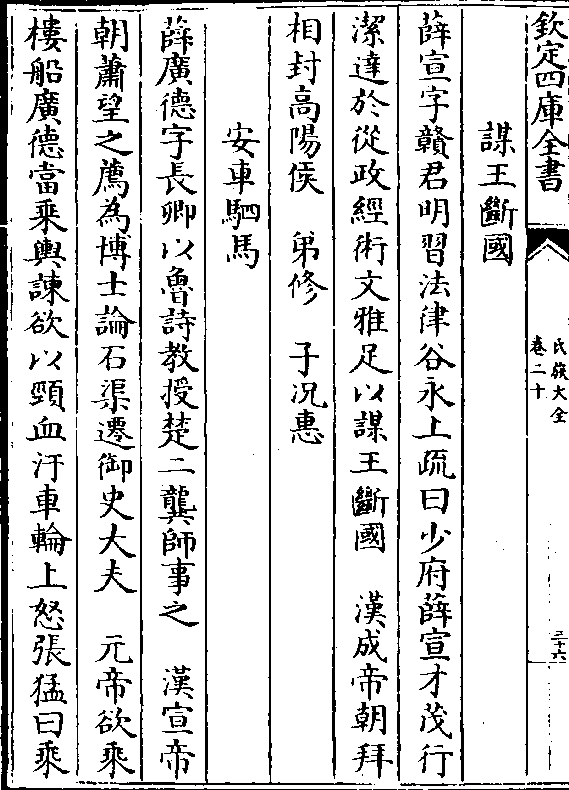 欽定四庫全書
氏族大全
卷二十
三十六
謀王斷國
薛宣字贛君明習法律谷永上疏曰少府薛宣才茂行
潔達於從政經術文雅足以謀王斷國　漢成帝朝拜
相封高陽侯　弟修　子況惠
安車駟馬
薛廣德字長卿以魯詩教授楚二龔師事之　漢宣帝
朝蕭望之薦為博士論石渠遷御史大夫　元帝欲乘
樓船廣德當乘輿諫欲以頸血汙車輪上怒張猛曰乘